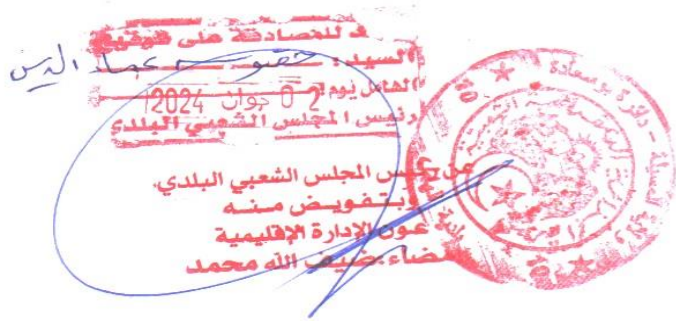 للمصادقة على توقيع
السيد : عماد الدين
الهامل يوم 20 جوان 2024
رئيس المجلس الشعبي البلدي
عن رئيس المجلس الشعبي البلدي.
وبتفويض منه
عون الإدارة الإقليمية
إمضاء: ضيف الله محمد
ولاية المسيلة - دائرة بوسعادة